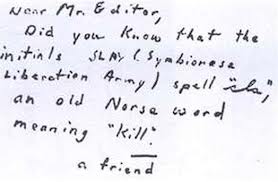 Dear Mr. Editor,
Did you know that the
initials SLAY (Symbionese
Liberation Army) spell "sla,"
an old Norse word
meaning "kill."
a friend